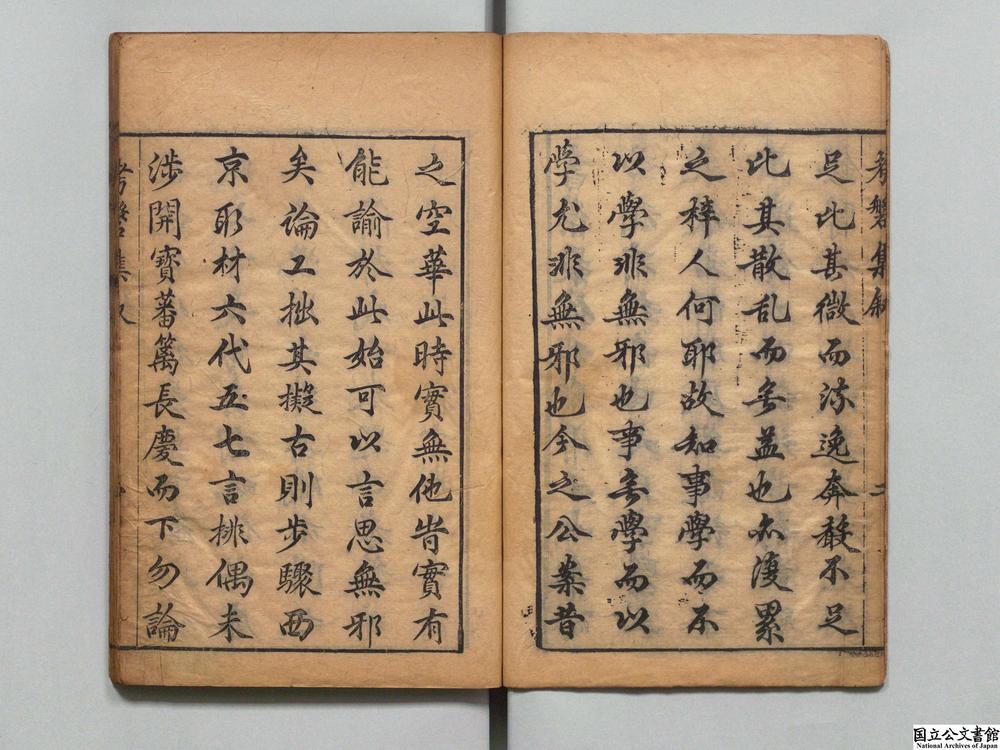 考槃集叙
二
足比甚微而流逸奔馳不足
比其散乱而無益也亦復累
之梓人何耶故知事學而不
以學非無邪也事無學而以
學尤非無邪也今之公案昔
之空華此時實無他皆實有
能諭於此始可以言思無邪
矣論工拙其擬古則步驟西
京取材六代五七言排偶未
涉開寶蕃篱長慶而下勿論
考槃集
国立公文書館
National Archives of Japan